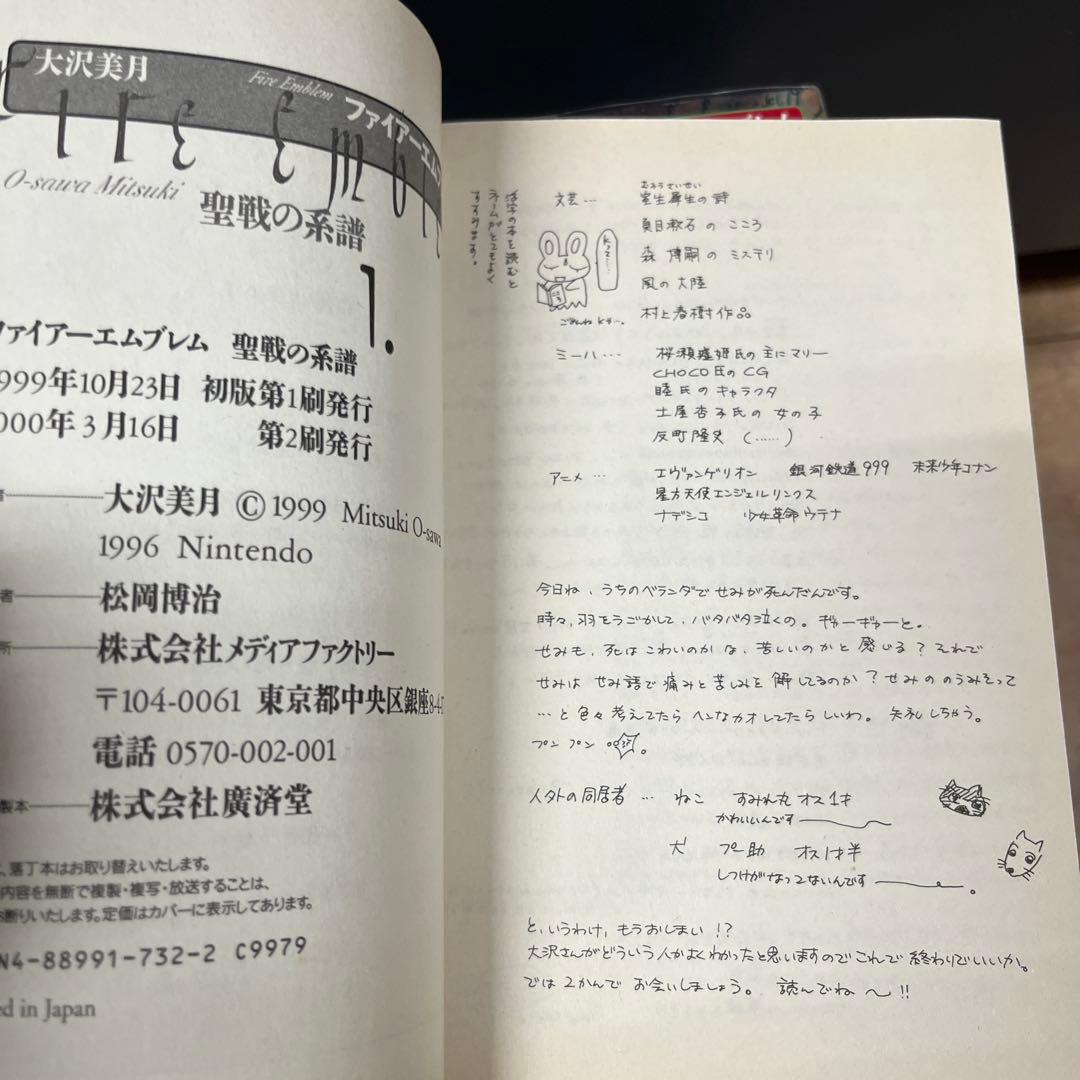 大沢美月
Fire Emblem
ファイアーエムブ
Fire Emble
O-sawa Mitsuki
聖戦の系譜
1.
ファイアーエムブレム 聖戦の系譜
1999年10月23日 初版第1刷発行
2000年3月16日 第2刷発行
者 大沢美月 © 1999 Mitsuki O-sawa
1996 Nintendo
者 松岡博治
所 株式会社メディアファクトリー
〒104-0061 東京都中央区銀座8-4-
電話 0570-002-001
製本 株式会社廣済堂
、落丁本はお取り替えいたします。
内容を無断で複製・複写・放送することは、
お断りいたします。定価はカバーに表示してあります。
N4-88991-732-2 C9979
ed in Japan
活字の本を読むと
ネームがとてもよく
すすみます。
文芸… 室生犀生の詩
むろうさいせい
夏目漱石の こころ
森 博嗣の ミステリ
風の大陸
村上春樹作品
Kって……
こころ
ごめんねKサ…。
ミーハー… 桜瀬琥姫氏の主にマリー
CHOCO氏のCG
睦氏のキャラクタ
土屋杏子氏の 女の子
反町隆史 (……)
アニメ… エヴァンゲリオン 銀河鉄道999 未来少年コナン
星方天使エンジェルリンクス
ナデシコ 少女革命ウテナ
今日ね、うちのベランダで せみが死んだんです。
時々、羽をうごかして、バタバタ泣くの。ギャーギャーと。
せみも、死はこわいのかな、苦しいのかと感じる?それで
せみは せみ語で痛みと苦しみを 解してるのか?せみののうみそって
…と色々考えてたら ヘンなカオしてたらしいわ。失礼しちゃう。
プン プン 。
人外の同居者 … ねこ すみれ丸 オス1才
かわいいんです
犬 プー助 オス1才半
しつけがなってないんです 。
と、いうわけ、もうおしまい!?
大沢さんがどういう人かよくわかったと思いますのでこれで 終わりでいいか。
では 2かんで お会いしましょう。 読んでね〜!!